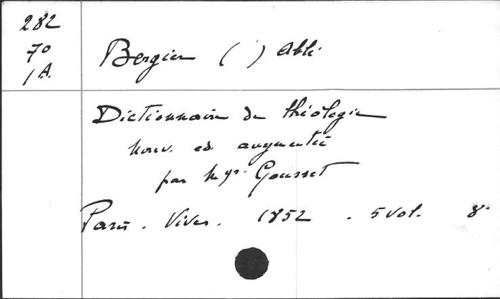 282
70
1A.
Bergier ( ) Abbé
Dictionnaire de théologie
Nouv. ed. augmentée
par Mgr. Gousset
Paris. Vivès. 1852. 5 vol. 8°